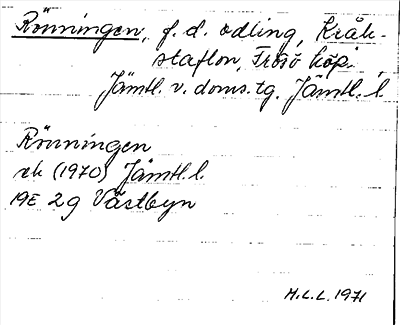 Rönningen, f.d. odling, Kråk-
staflon, Frösö köp.
Jämtl. v. doms.tg. Jämtl. l.
Rönningen
ek (1970) Jämtl. l.
19E 2g Västbyn
H.L.L. 1971